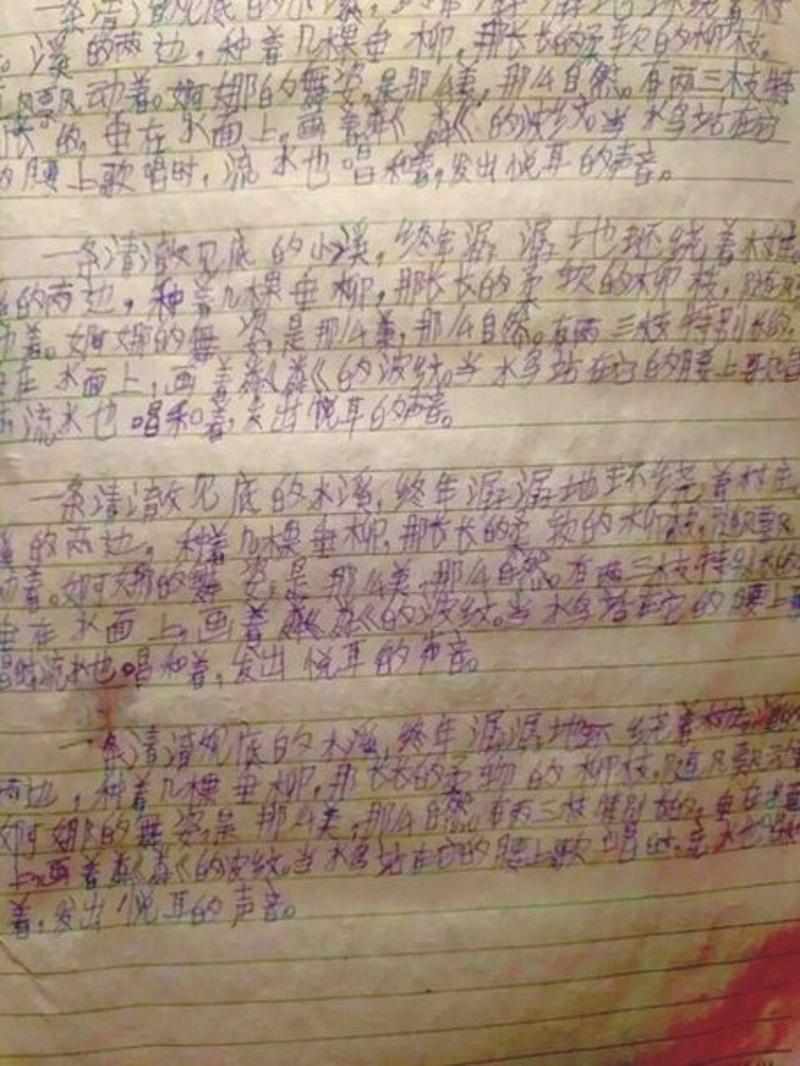 一条清澈见底的小溪,终年潺潺地环绕着村
。溪的两边,种着几棵垂柳,那长长的柔软的柳枝,
飘动着。婀娜的舞姿,是那么美,那么自然。有两三枝特
长的,垂在水面上,画着粼粼的波纹。当水鸟站在它
的腰上歌唱时,流水也唱和着,发出悦耳的声音。
一条清澈见底的小溪,终年潺潺地环绕着村庄。
的两边,种着几棵垂柳,那长长的柔软的柳枝,随风
动着。婀娜的舞姿,是那么美,那么自然。有两三枝特别长的,
垂在水面上,画着粼粼的波纹。当水鸟站在它的腰上歌唱
流水也唱和着,发出悦耳的声音。
一条清澈见底的水溪,终年潺潺地环绕着村庄
的两边,种着几棵垂柳,那长长的柔软的柳枝,随风飘
动着。婀娜的舞姿,是那么美,那么自然。有两三枝特别长的
垂在水面上,画着粼粼的波纹。当水鸟站在它的腰上歌
唱时流水也唱和着,发出悦耳的声音。
一条清清见底的水溪,终年潺潺地环绕着村庄
两边,种着几棵垂柳,那长长的柔的柳枝,随风飘动着
婀娜的舞姿,是那么美,那么自然。有两三枝特别长的,垂在水面
上,画着粼粼的波纹。当水鸟站在它的腰上歌唱时,流水也唱和
着,发出悦耳的声音。